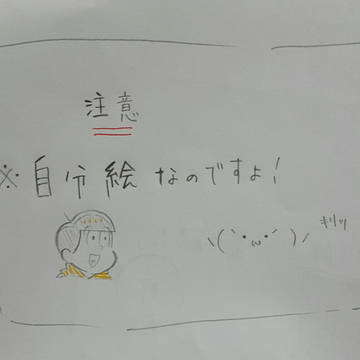 注意
※自分絵なのですよ!
\(｀・ω・´)/ キリッ